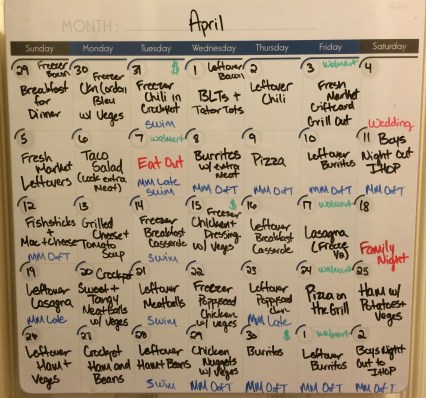 MONTH: April
Sunday Monday Tuesday Wednesday Thursday Friday Saturday
29 Freezer Bacon
Breakfast
for
Dinner
30 Freezer
Ckn Cordon
Bleu
w/ Veges
31 $
Freezer
Chili in
Crockpot
Swim
1 Leftover
Bacon
BLTs +
Tator Tots
2
Leftover
Chili
3 Walmart
Fresh
Market
Giftcard
Grill Out
4
Wedding
5
Fresh
Market
Leftovers
6
Taco
Salad
(Cook extra
Meat)
7 Walmart
Eat Out
MM Late
Swim
8
Burritos
w/ extra
Meat
MM OofT
9
Pizza
MM OofT
10
Leftover
Burritos
MM OofT
11 Boys
Night Out
IHOP
MM OofT
12
Fishsticks
+
Mac+Cheese
MM OofT
13
Grilled
Cheese+
Tomato
Soup
14
Freezer
Breakfast
Casserole
Swim
15 $
Freezer
Chicken+
Dressing
w/ Veges
16
Leftover
Breakfast
Casserole
17 Walmart
Lasagna
(Freeze
1/2)
18
Family
Night
19
Leftover
Lasagna
MM Late
20 Crockpot
Sweet +
Tangy
Meatballs
w/ Veges
21
Leftover
Meatballs
Swim
22
Freezer
Poppyseed
Chicken
w/ Veges
23
Leftover
Poppyseed
Ckn
MM Late
24 Walmart
Pizza on
the Grill
25
Ham w/
Potatoes+
Veges
26
Leftover
Ham +
Veges
27
Crockpot
Ham and
Beans
28
Leftover
Ham and Beans
Swim
29
Chicken
Nuggets
w/ Veges
MM OofT
30 $
Burritos
MM OofT
1 Walmart
Leftover
Burritos
MM OofT
2
Boys Night
Out to
IHOP
MM OofT